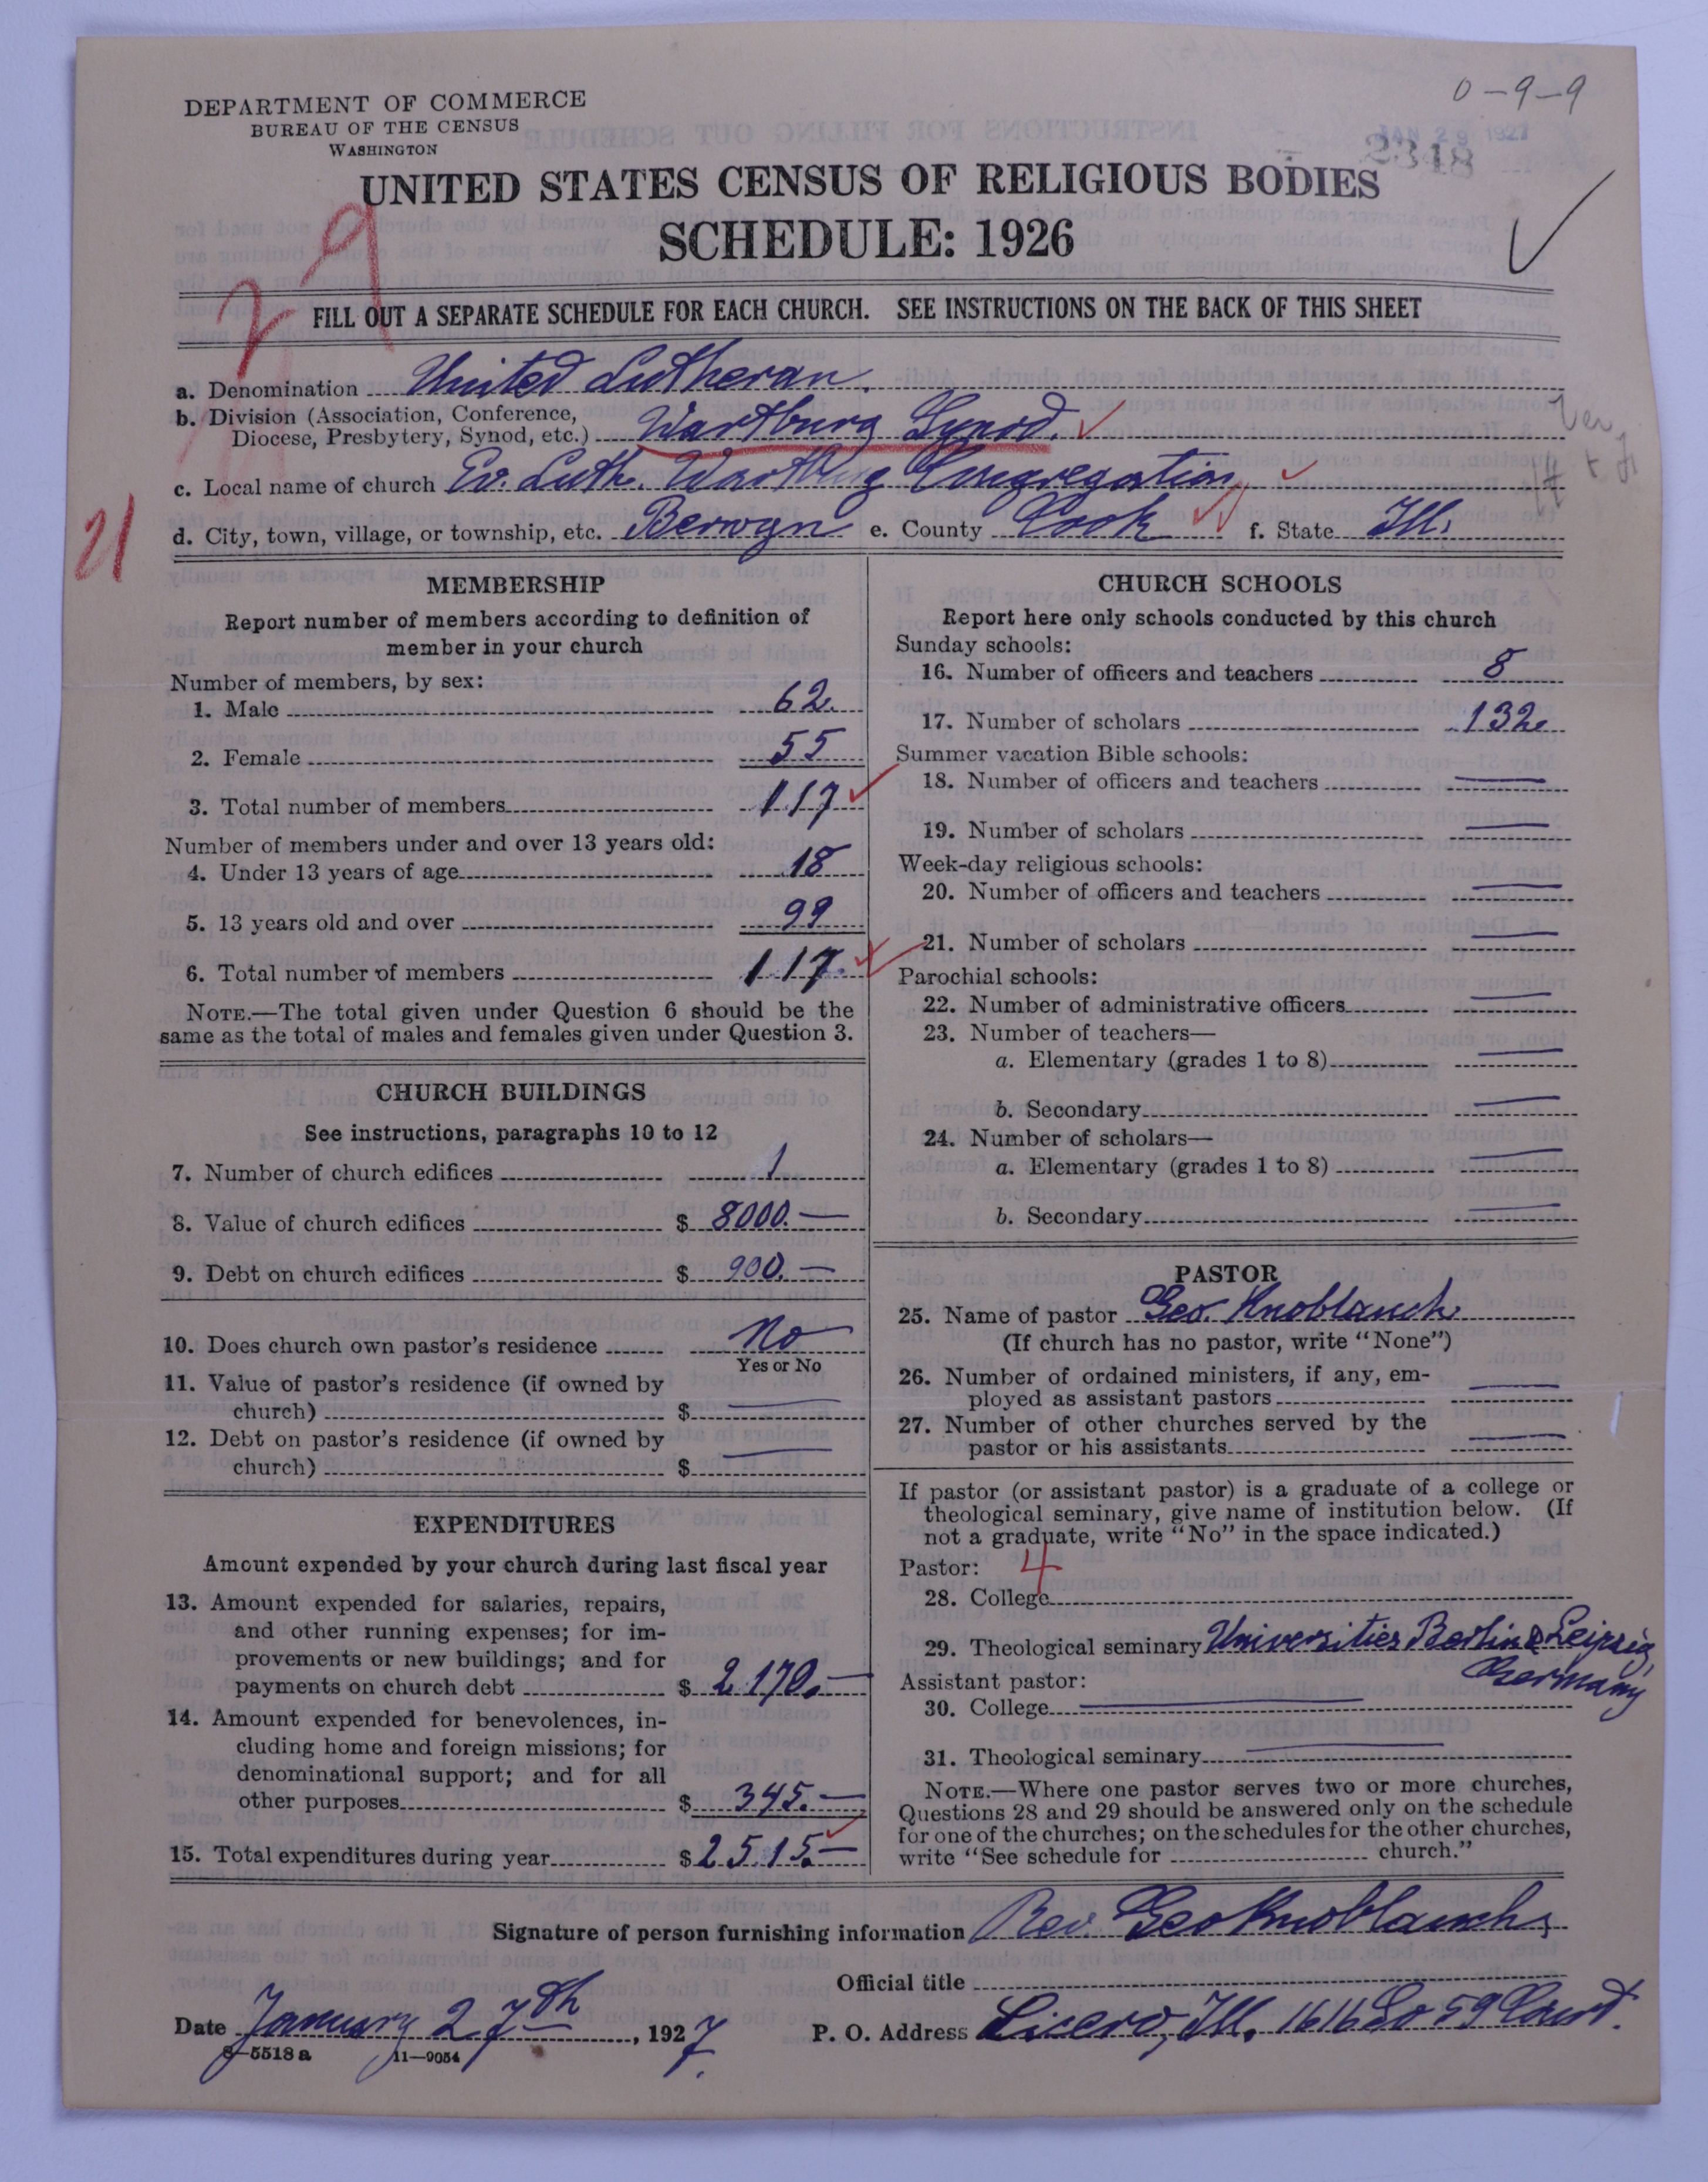 0-9-9
DEPARTMENT OF COMMERCE
BUREAU OF THE CENSUS
WASHINGTON
JAN 29 1927
2318
UNITED STATES CENSUS OF RELIGIOUS BODIES
SCHEDULE: 1926
29
FILL OUT A SEPARATE SCHEDULE FOR EACH CHURCH. SEE INSTRUCTIONS ON THE BACK OF THIS SHEET
a. Denomination United Lutheran.
b. Division (Association, Conference,
Diocese, Presbytery, Synod, etc.) Wartburg Synod.
c. Local name of church Ev. Luth. Wartburg Congregation
21
d. City, town, village, or township, etc. Berwyn e. County Cook f. State Ill.
MEMBERSHIP
Report number of members according to definition of
member in your church
Number of members, by sex:
1. Male 62.
2. Female 55
3. Total number of members 117
Number of members under and over 13 years old:
4. Under 13 years of age 18
5. 13 years old and over 99
6. Total number of members 117.
NOTE.—The total given under Question 6 should be the
same as the total of males and females given under Question 3.
CHURCH BUILDINGS
See instructions, paragraphs 10 to 12
7. Number of church edifices 1
8. Value of church edifices $ 8000.—
9. Debt on church edifices $ 900.—
10. Does church own pastor's residence No
Yes or No
11. Value of pastor's residence (if owned by
church) $ —
12. Debt on pastor's residence (if owned by
church) $ —
EXPENDITURES
Amount expended by your church during last fiscal year
13. Amount expended for salaries, repairs,
and other running expenses; for im-
provements or new buildings; and for
payments on church debt $ 2170.—
14. Amount expended for benevolences, in-
cluding home and foreign missions; for
denominational support; and for all
other purposes $ 345.—
15. Total expenditures during year $ 2515.—
CHURCH SCHOOLS
Report here only schools conducted by this church
Sunday schools:
16. Number of officers and teachers 8
17. Number of scholars 132.
Summer vacation Bible schools:
18. Number of officers and teachers —
19. Number of scholars —
Week-day religious schools:
20. Number of officers and teachers —
21. Number of scholars —
Parochial schools:
22. Number of administrative officers —
23. Number of teachers—
a. Elementary (grades 1 to 8) —
b. Secondary —
24. Number of scholars—
a. Elementary (grades 1 to 8) —
b. Secondary —
PASTOR
25. Name of pastor Geo. Knoblauch
(If church has no pastor, write "None")
26. Number of ordained ministers, if any, em-
ployed as assistant pastors —
27. Number of other churches served by the
pastor or his assistants —
If pastor (or assistant pastor) is a graduate of a college or
theological seminary, give name of institution below. (If
not a graduate, write "No" in the space indicated.)
Pastor: 4
28. College
29. Theological seminary Universities Berlin & Leipzig,
Germany
Assistant pastor:
30. College —
31. Theological seminary —
NOTE.—Where one pastor serves two or more churches,
Questions 28 and 29 should be answered only on the schedule
for one of the churches; on the schedules for the other churches,
write "See schedule for church."
Signature of person furnishing information Rev. Geo Knoblauch,
Official title
Date January 27th, 1927.
P. O. Address Cicero, Ill. 1616 So 59 Court.
8-5518 a 11-9054